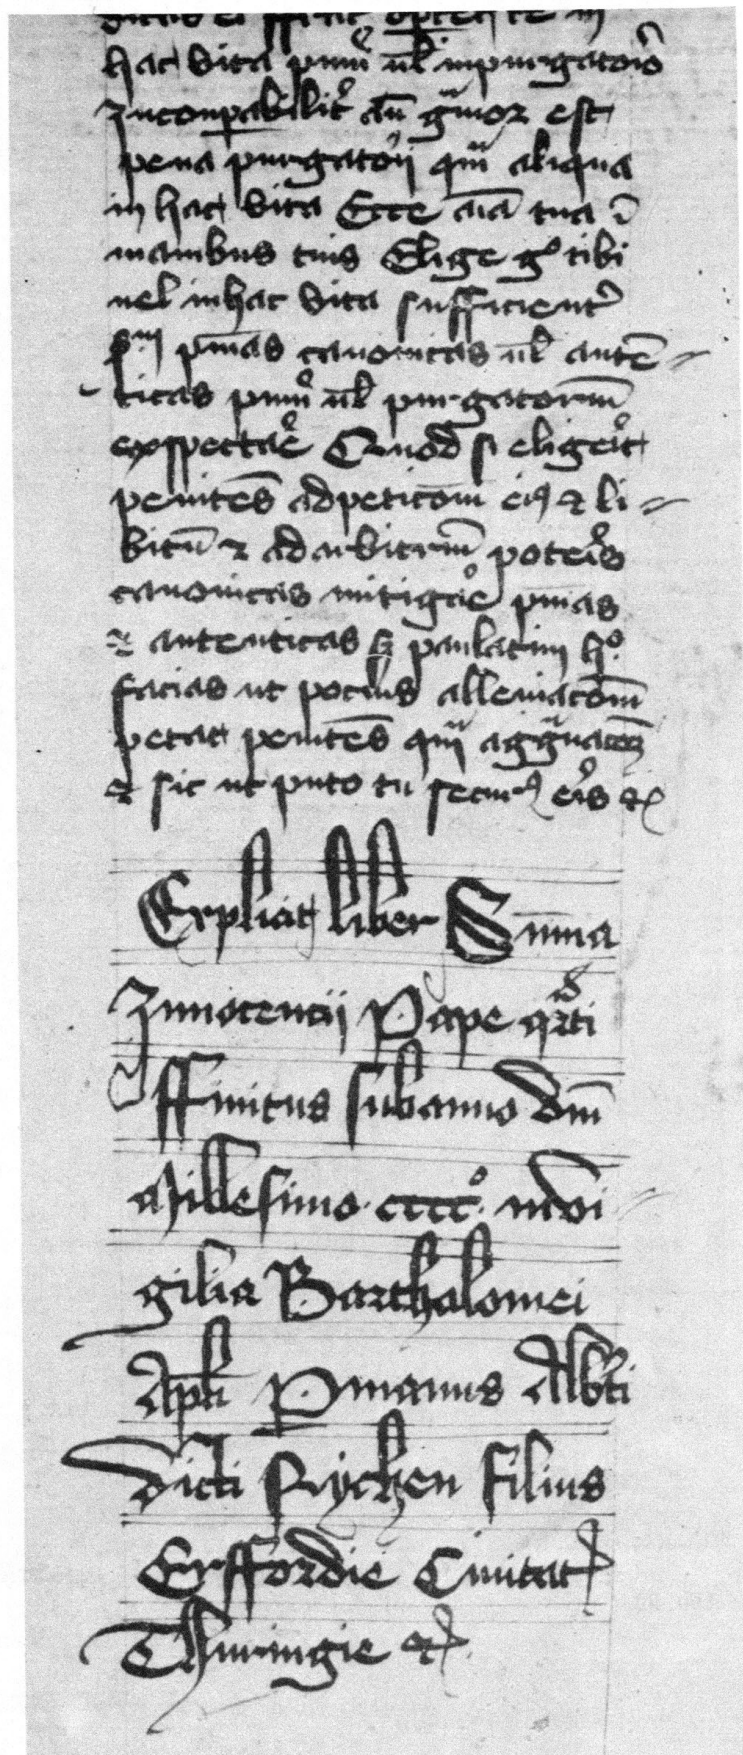 hac vita pnīr̄ ul̄ in purgatorio
Incomparabilit̄ aū gͣuior est
pena purgatorij qͣm aliqua
in hac vita Ecce aīa tua ī
manibus tuis Elige gͦ tibi
uel in hac vita sufficient̄
pnīas canonicas ul̄ autē
ticas ul̄ purgatoriū
exspectar̄e Quod si eligerit
penitēs ad peticōm eiꝯ ⁊ li
bitū ⁊ ad arbitriū poteris
canonicas mitigar̄e pnīas
⁊ autenticas sꝫ paulatim hͦ
facias ut potius alleuiacōm
petat penitēs qͣm aggͣuacōm
⁊ sic ut puto tu securꝯ eris ⁊c̄
Explicit liber Sūma
Innocencij Pape qͣrti
ffinitus sub anno dn̄i
Millesimo. ccccͦ. in vi
gilia Bartholomei
Apl̄i P manus Alb̄ti
dicti Rychen filius
Erffordie Ciuitat̄
Thuringie ⁊c̄.